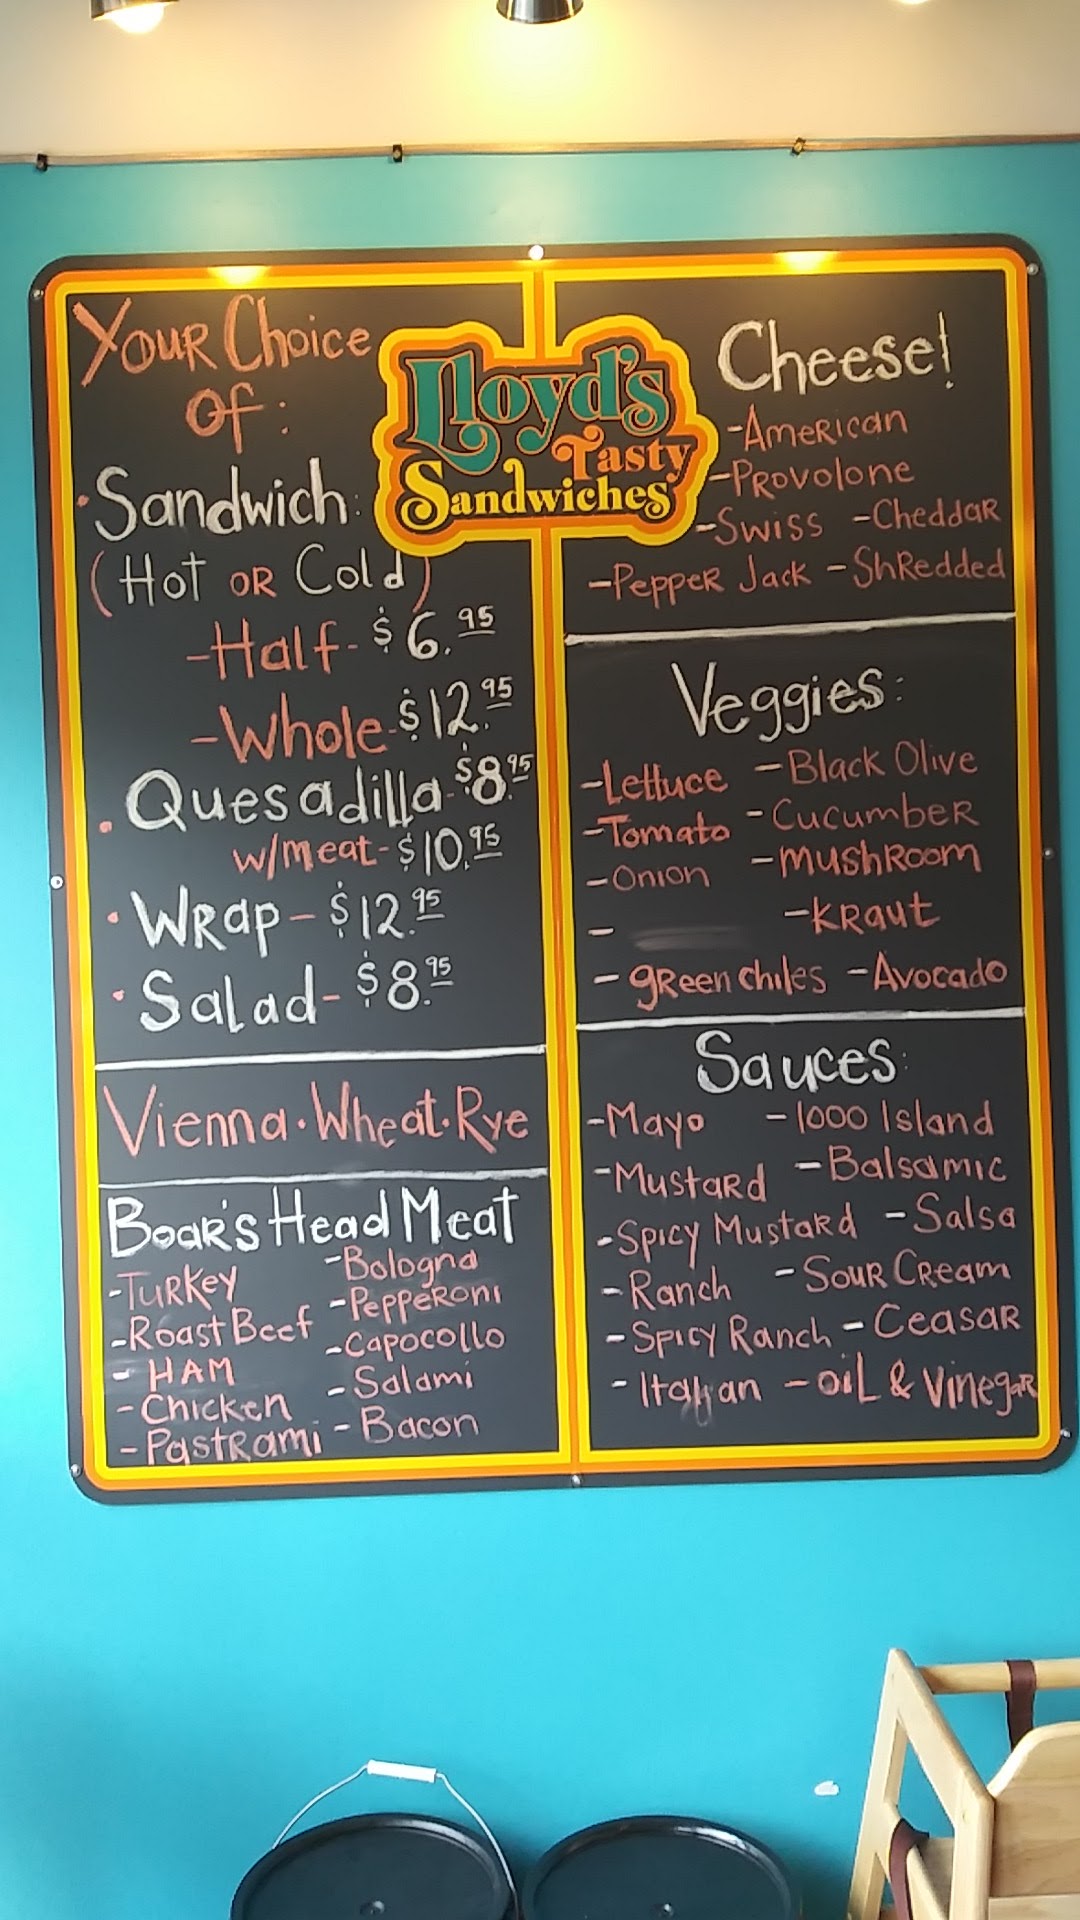 Your Choice
Of:
Lloyd's
Tasty
Sandwiches
· Sandwich:
(Hot OR Cold)
-Half- $6.95
-Whole- $12.95
· Quesadilla- $8.95
w/meat- $10.95
· Wrap - $12.95
· Salad- $8.95
Vienna · Wheat · Rye
Boar's Head Meat
-Turkey -Bologna
-Roast Beef -Pepperoni
- HAM -Capocollo
- Chicken - Salami
- Pastrami - Bacon
Cheese!
-American
-Provolone
-Swiss -Cheddar
-Pepper Jack -Shredded
Veggies:
-Lettuce -Black Olive
-Tomato -Cucumber
-Onion -mushroom
- -Kraut
- green chiles -Avocado
Sauces:
-Mayo -1000 Island
-Mustard -Balsamic
-Spicy Mustard -Salsa
-Ranch -Sour Cream
-Spicy Ranch -Ceasar
-Italian -oil & Vinegar